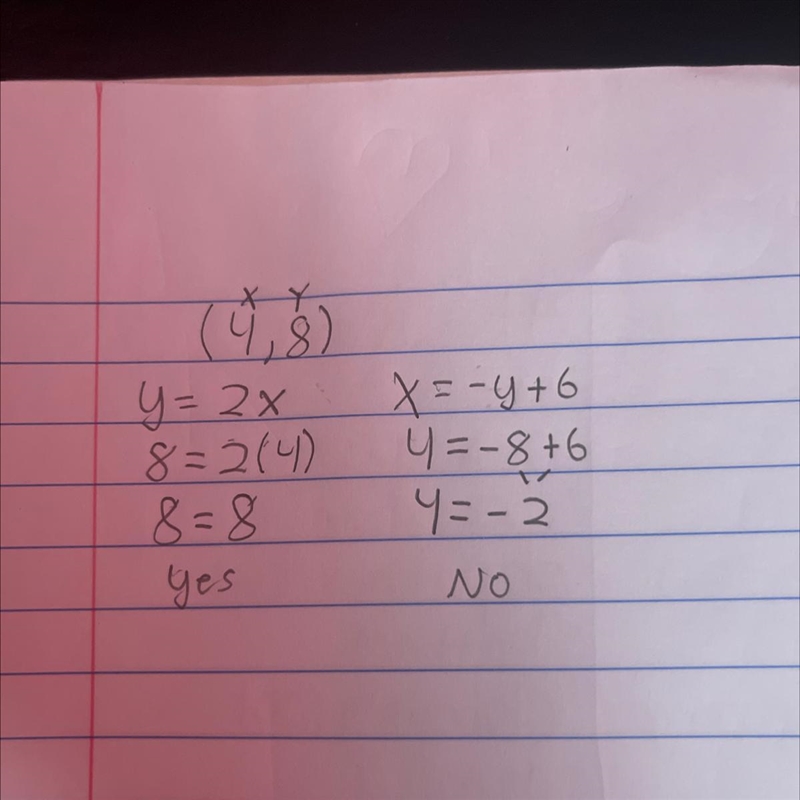 x y
(4,8)
y = 2x x = -y + 6
8 = 2(4) 4 = -8 + 6
8 = 8 4 = -2
yes NO